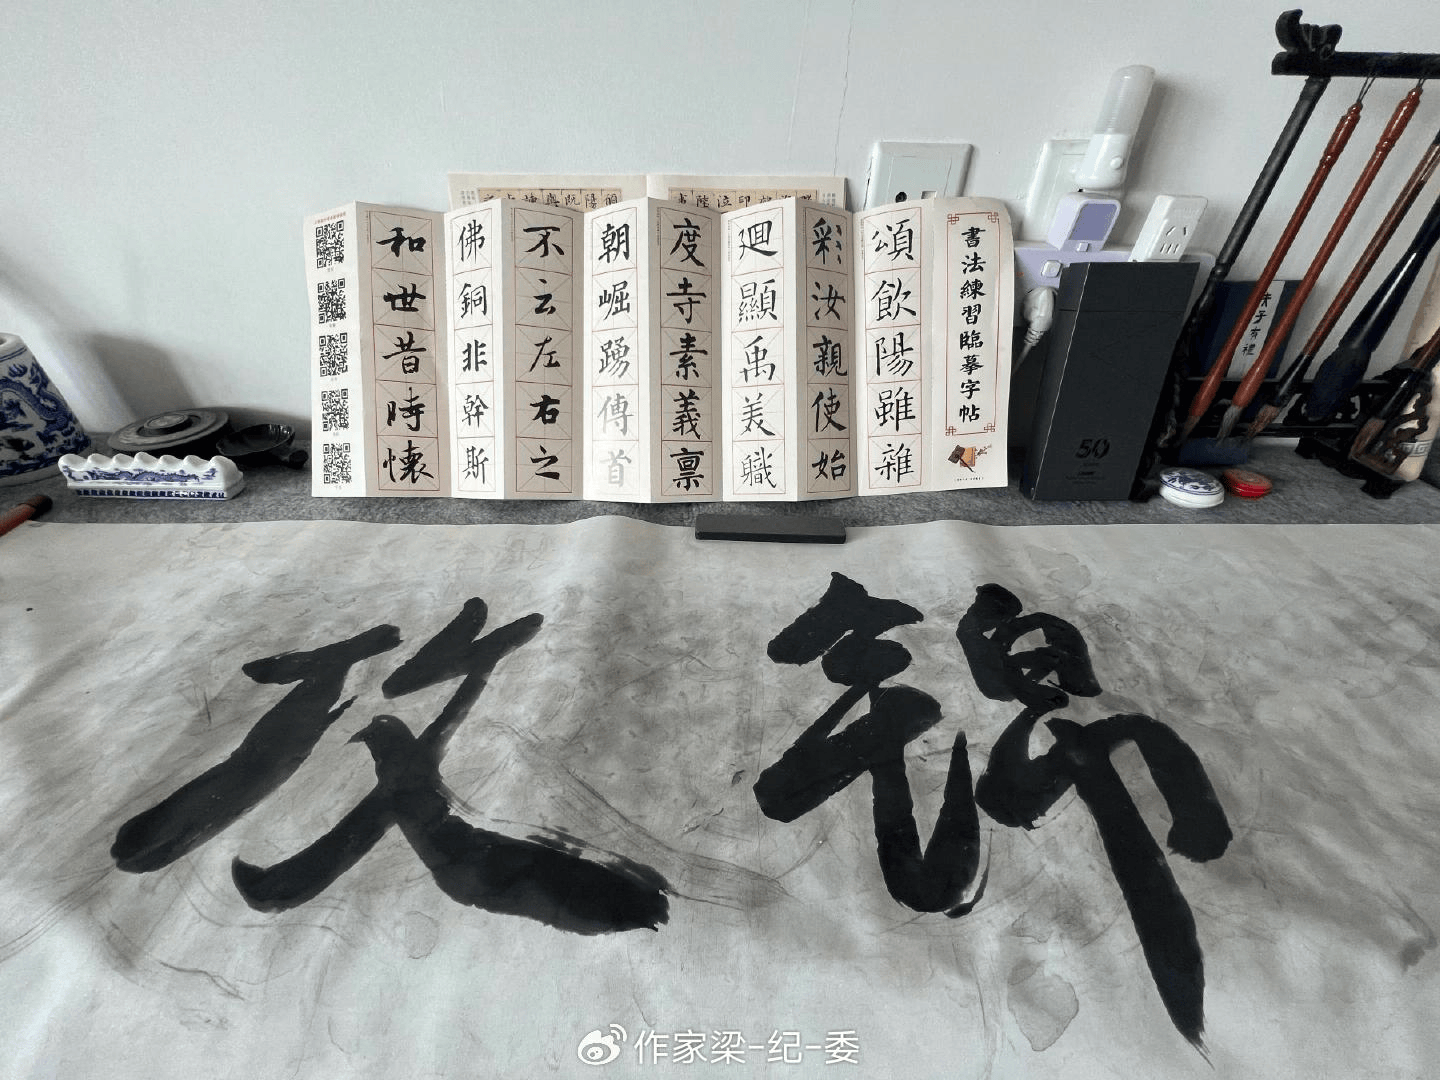 書法練習臨摹字帖
頌飲陽雖雜
彩汝親使始
廻顯禹美職
度寺素義禀
朝崛踴傳首
不云左右之
佛銅非幹斯
和世昔時懷
朱子有禮
50
錦
作家梁-纪-委